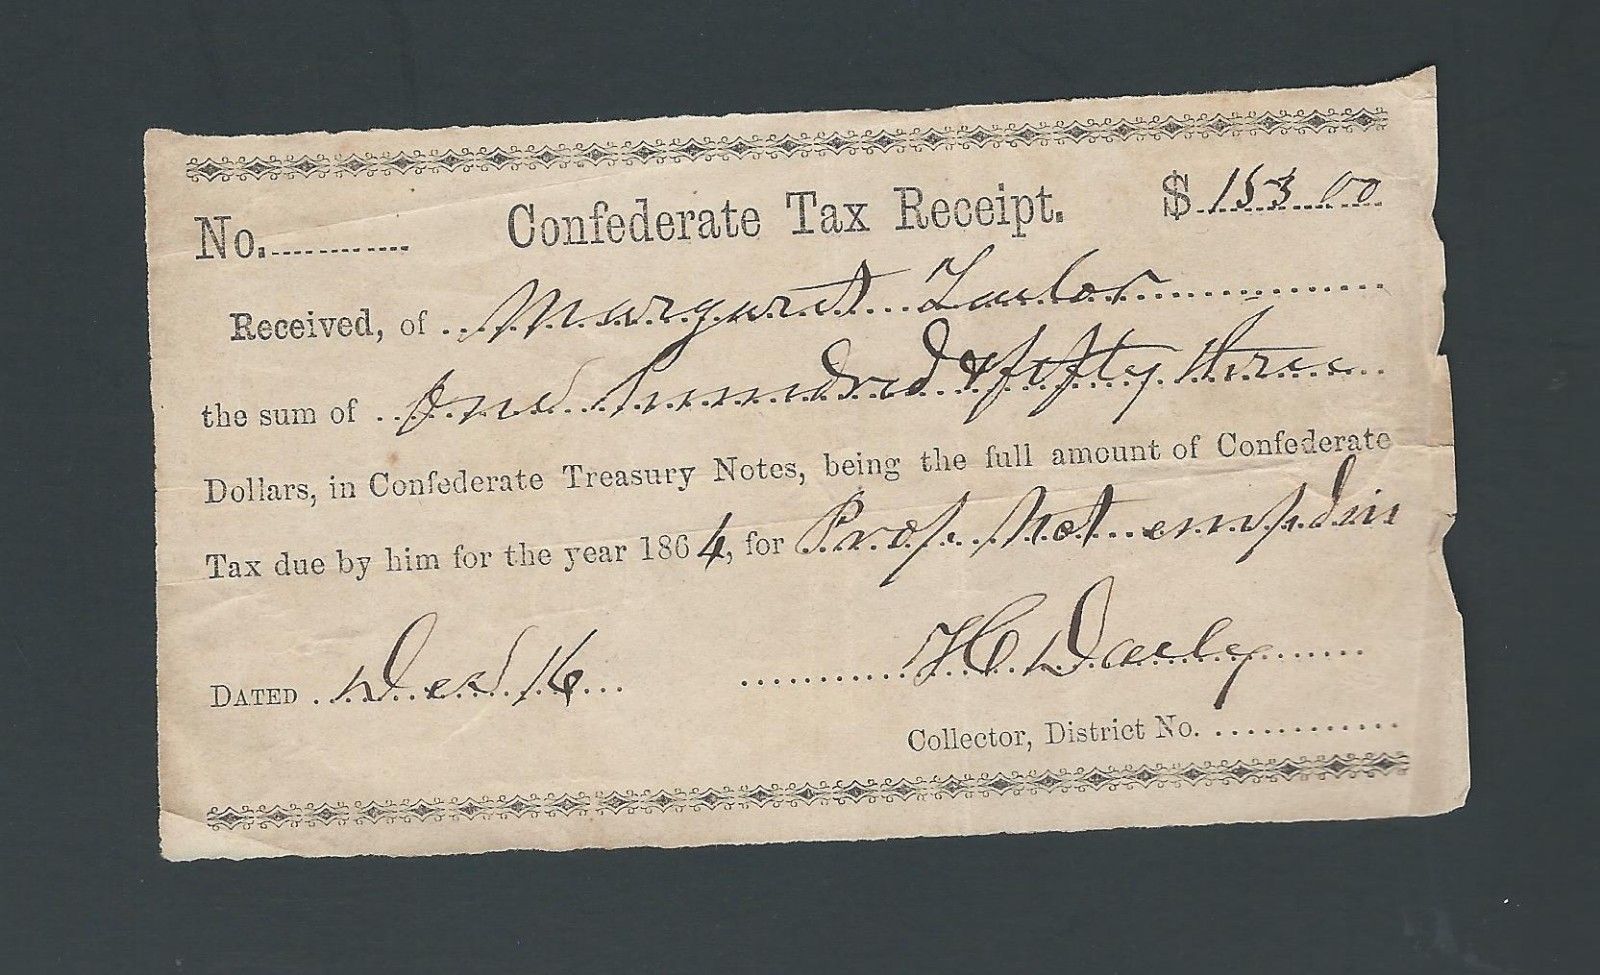 No. Confederate Tax Receipt. $ 153.00
Received, of Margaret Taylor
the sum of One hundred & fifty three
Dollars, in Confederate Treasury Notes, being the full amount of Confederate
Tax due by him for the year 1864, for Prop. Not
DATED 16 H
Collector, District No.